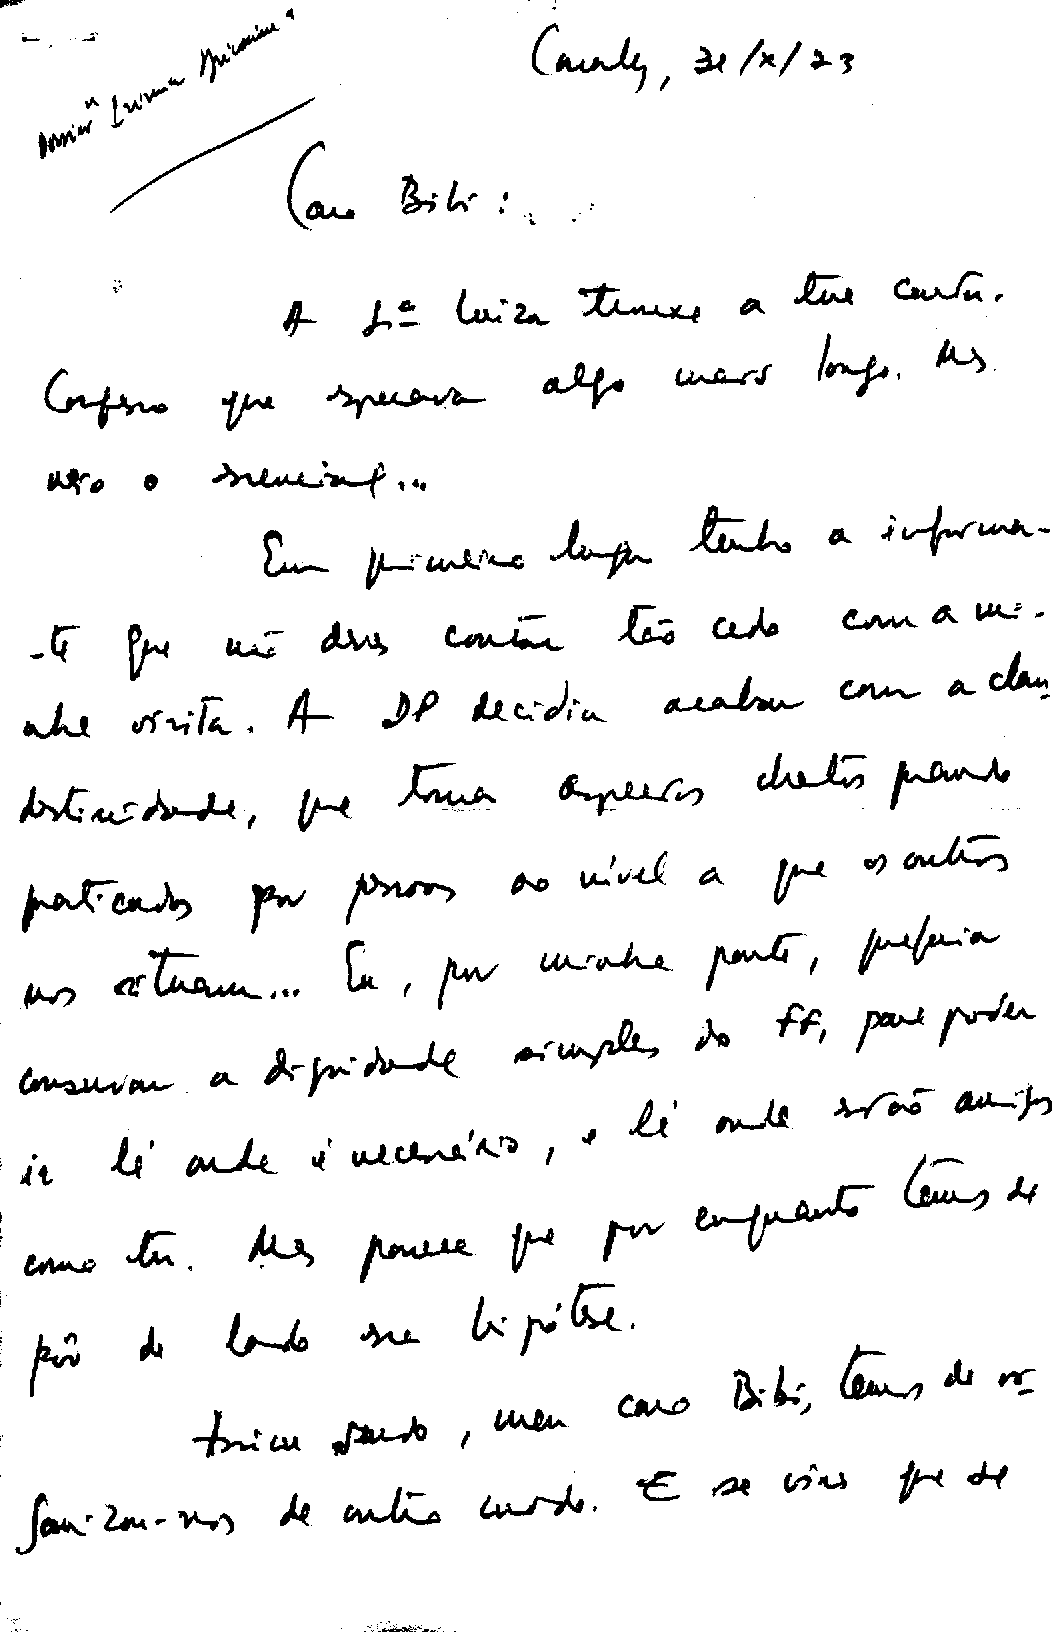 Dossier "
Conakry, 31/X/73
Caro Bibi:
A Luiza trouxe a tua carta.
Confesso que esperava algo mais longo. Mas
veio o essencial...
Em primeiro lugar tenho a informar-
-te que não deves contar tão cedo com a mi-
nha visita. A DP decidiu acabar com a clan-
destinidade, que toma aspectos chatos quando
praticados por pessoas ao nível a que os outros
nos situam... Eu, por minha parte, preferia
conservar a dignidade simples do FF, para poder
ir lá onde é necessário, e lá onde estão amigos
como tu. Mas parece que por enquanto temos de
pôr de lado essa hipótese.
Assim sendo, meu caro Bibi, temos de or-
ganizar-nos de outro modo. E se vires que de